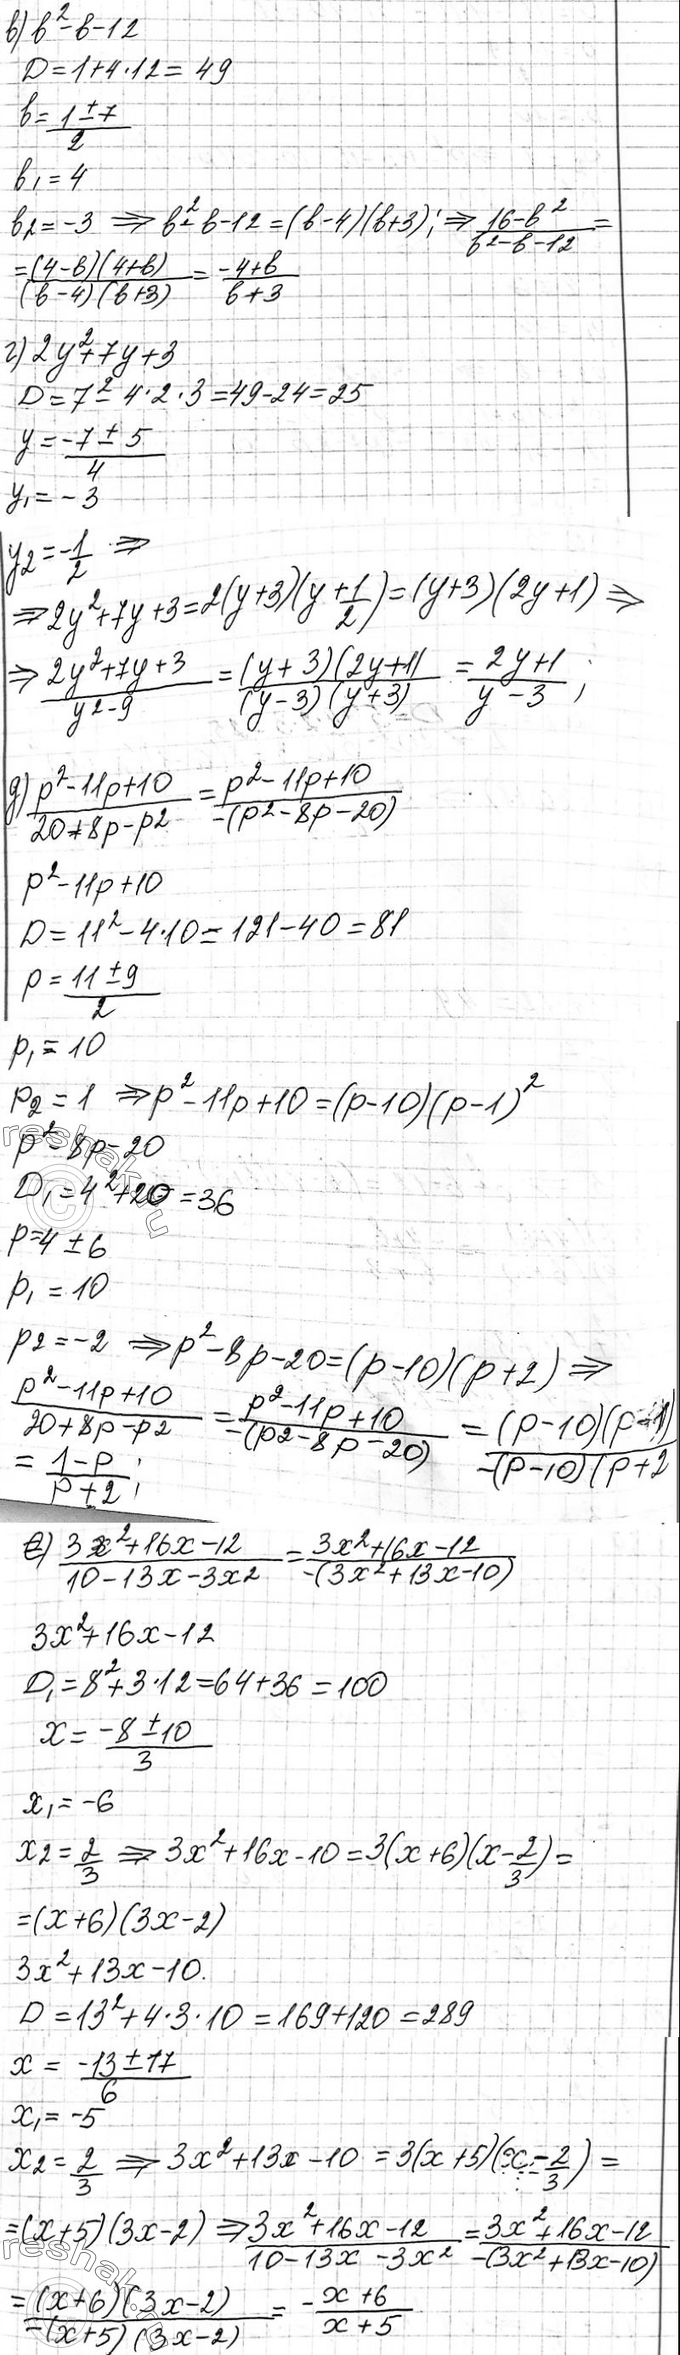 в) в²-в-12
D=1+4·12=49
в=(1±7)/2
в₁=4
в₂=-3 ⇒ в²-в-12=(в-4)(в+3); ⇒ (16-в²)/(в²-в-12)=
=((4-в)(4+в))/((в-4)(в+3))=(-4+в)/(в+3)
г) 2y²+7y+3
D=7²-4·2·3=49-24=25
y=(-7±5)/4
y₁=-3
y₂=-1/2 ⇒
⇒2y²+7y+3=2(y+3)(y+1/2)=(y+3)(2y+1)⇒
⇒(2y²+7y+3)/(y²-9)=((y+3)(2y+1))/((y-3)(y+3))=(2y+1)/(y-3);
д) (p²-11p+10)/(20+8p-p²)=(p²-11p+10)/(-(p²-8p-20))
p²-11p+10
D=11²-4·10=121-40=81
p=(11±9)/2
p₁=10
p₂=1 ⇒p²-11p+10=(p-10)(p-1)²
p²-8p-20
D₁=4²+20=36
p=4±6
p₁=10
p₂=-2 ⇒p²-8p-20=(p-10)(p+2)⇒
(p²-11p+10)/(20+8p-p²)=(p²-11p+10)/(-(p²-8p-20))=((p-10)(p-1))/(-(p-10)(p+2
=(1-p)/(p+2);
е) (3x²+16x-12)/(10-13x-3x²)=(3x²+16x-12)/(-(3x²+13x-10))
3x²+16x-12
D₁=8²+3·12=64+36=100
x=(-8±10)/3
x₁=-6
x₂=2/3 ⇒ 3x²+16x-10=3(x+6)(x-2/3)=
=(x+6)(3x-2)
3x²+13x-10.
D=13²+4·3·10=169+120=289
x=(-13±17)/6
x₁=-5
x₂=2/3 ⇒ 3x²+13x-10=3(x+5)(x-2/3)=
=(x+5)(3x-2)⇒(3x²+16x-12)/(10-13x-3x²)=(3x²+16x-12)/(-(3x²+13x-10))
=((x+6)(3x-2))/(-(x+5)(3x-2))=-(x+6)/(x+5)
reshak.ru
©